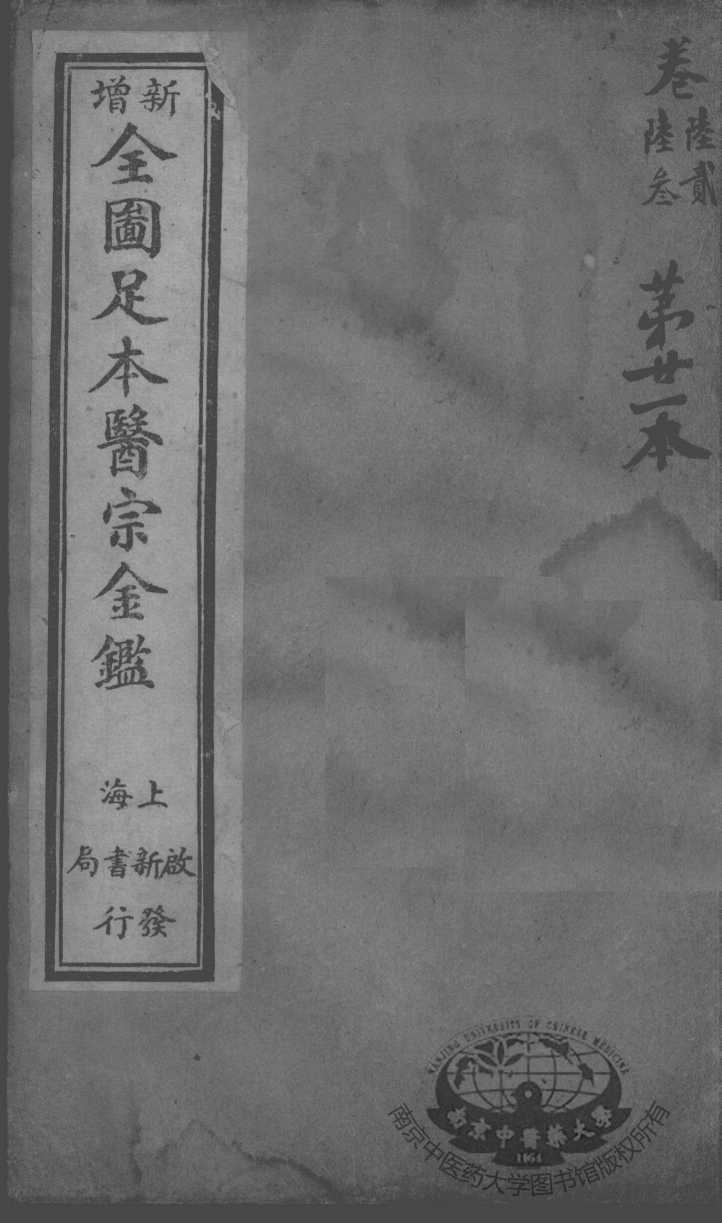 卷
陸貳
陸叁
第廿一本
新增
全圖足本醫宗金鑑
上海
啟新書局
發行
NANJING UNIVERSITY OF CHINESE MEDICINE
南京中醫藥大學
1954
南京中医药大学图书馆版权所有